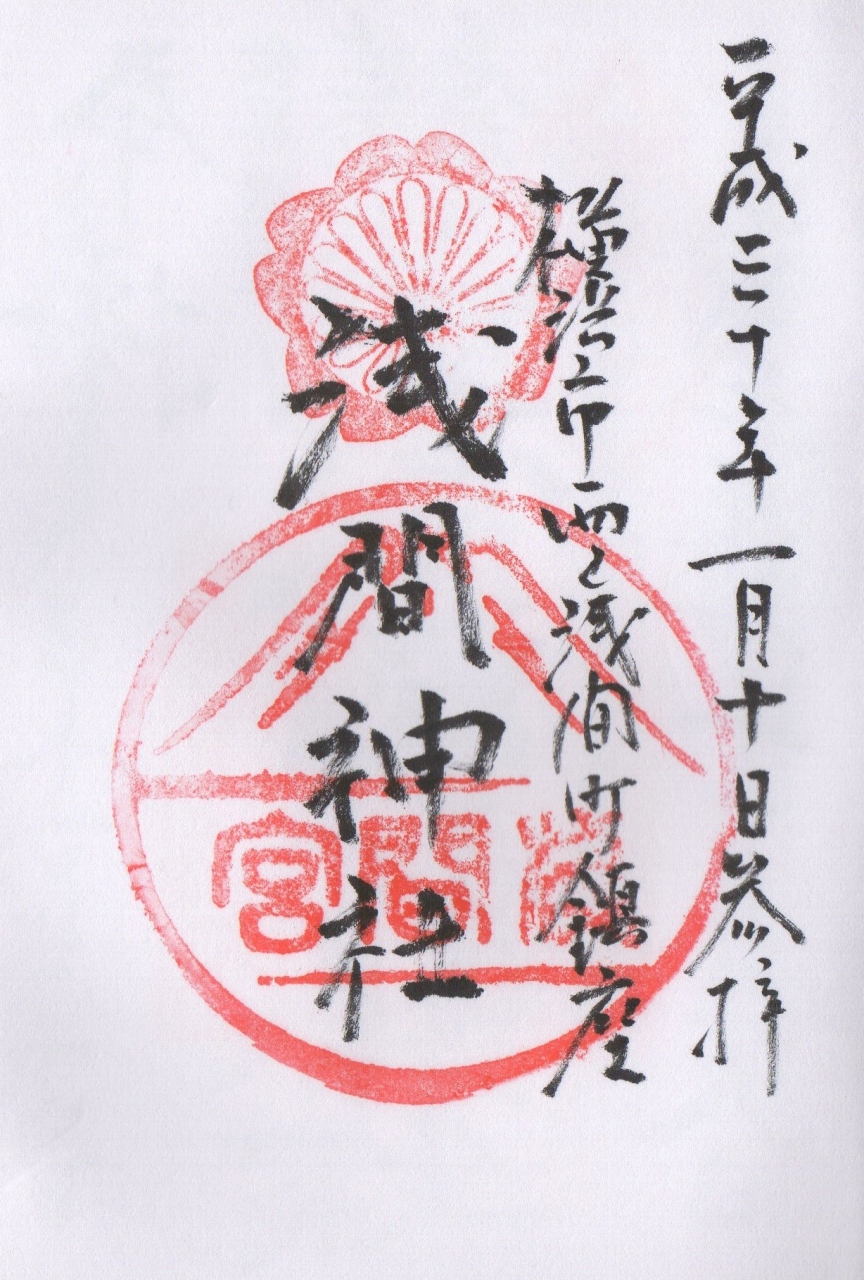 平成三十年一月十日参拝
横浜市西区浅間町鎮座
浅間神社
淺間宮